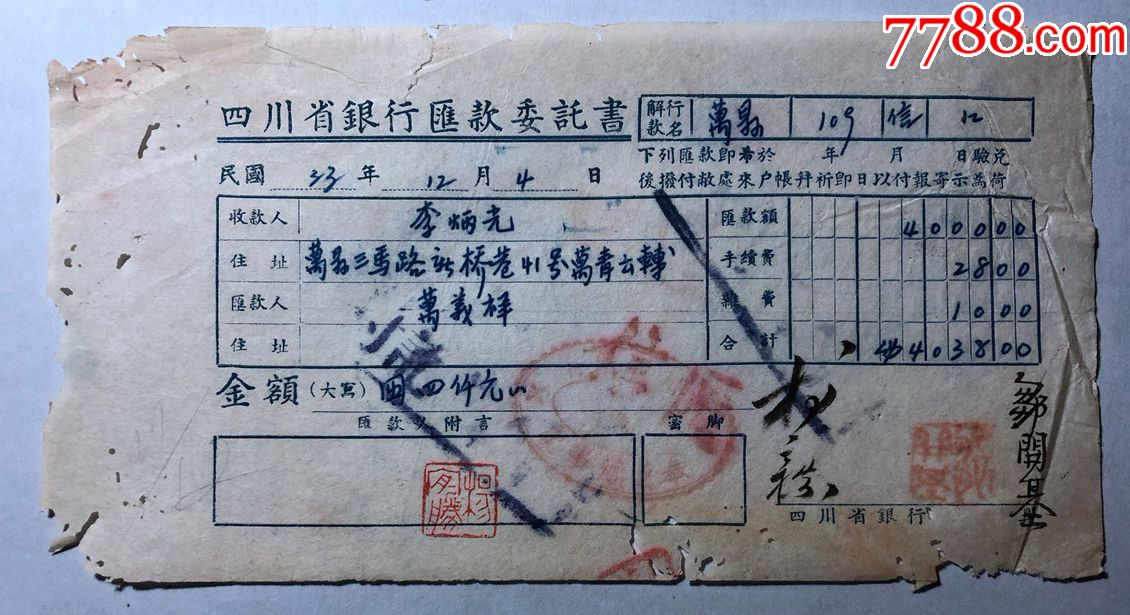 7788.com
四川省銀行匯款委託書
解款行名 萬县 109 信 12
下列匯款即希於 年 月 日驗兌
後撥付敝處來户帳拜祈即日以付報寄示為荷
民國 33 年 12 月 4 日
收款人 李炳光 匯款額 400000
住址 萬县三馬路新橋巷41号萬青云轉 手續費 2800
匯款人 萬義祥 雜費 1000
住址 合計 403800
金額 (大寫) 四仟元
匯款人附言 密脚
鄒開基
四川省銀行